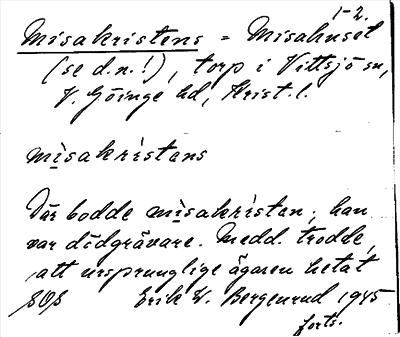 1-2.
Misakristens = Misahuset
(se d.n.!), torp i Vittsjö sn,
V. Göinge hd, Krist. l.
misakristens
Där bodde misakristen, han
var dödgrävare. Medd. trodde,
att ursprunglige ägaren hetat
Erik W. Bergenrud 1945
forts.